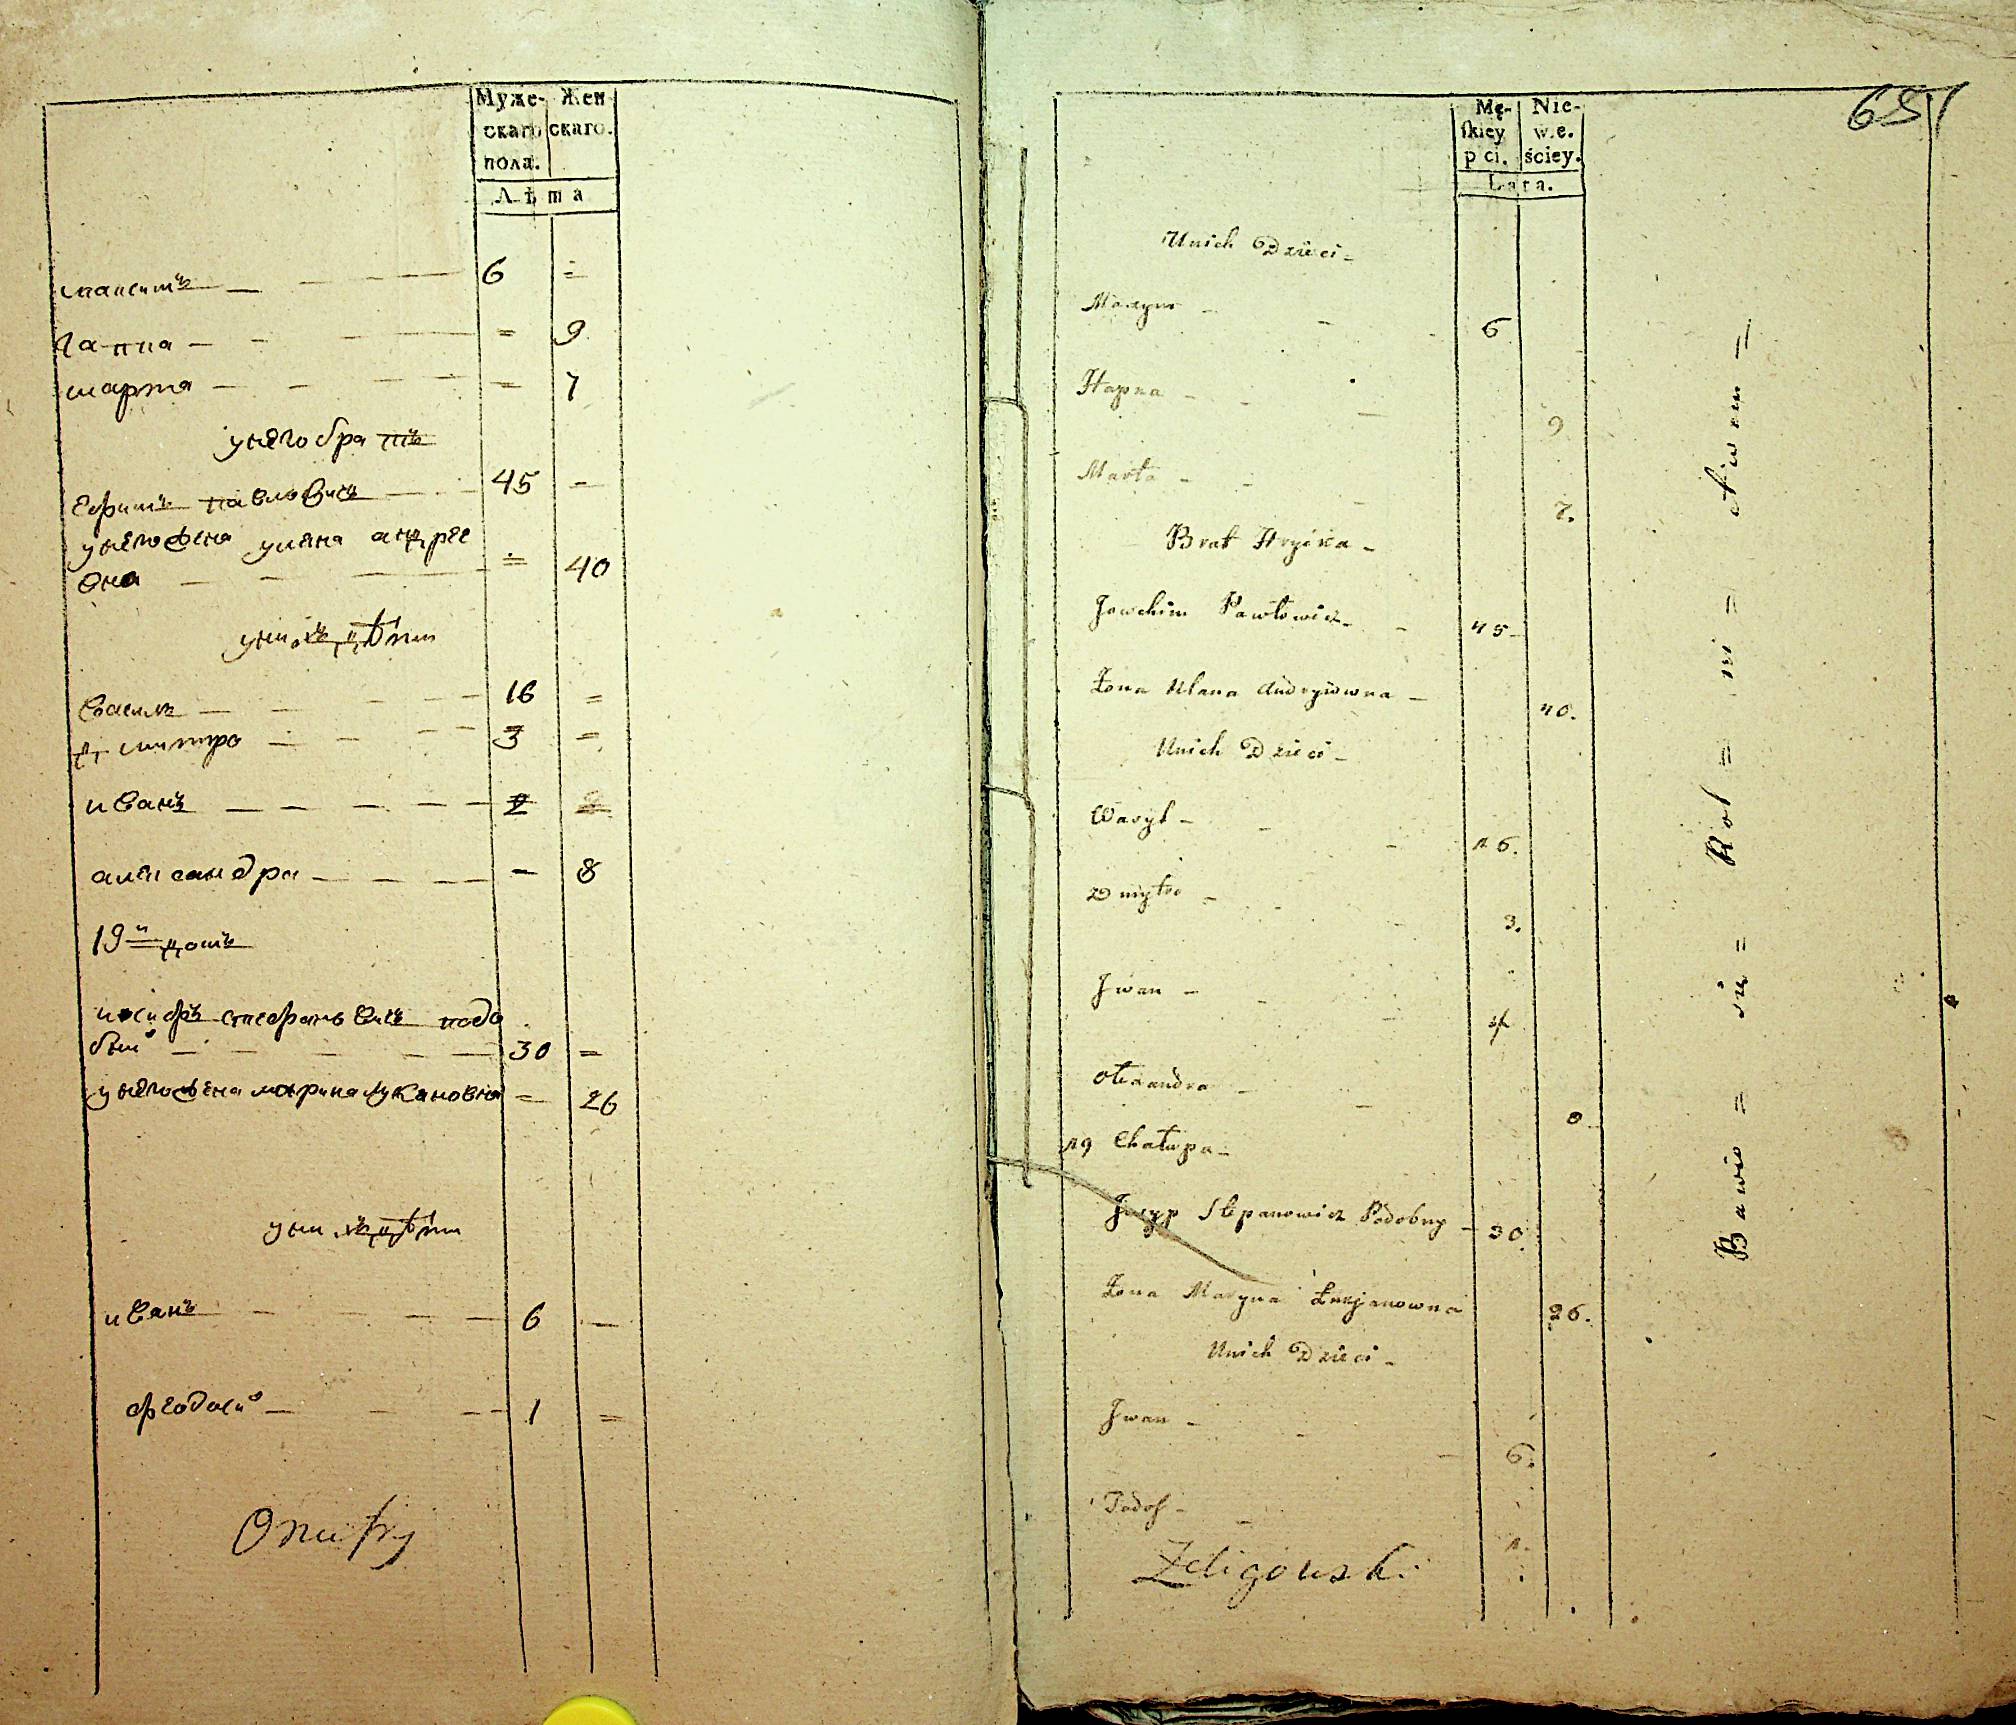 Муже- Жен
скаго скаго.
пола.
Лѣта
максимъ — — — 6 =
ганна — — — = 9
марта — — — = 7
унего братъ
Ефимъ павловичъ — 45 —
унего жена уляна андрее
вна — — — = 40
унихъ дѣти
василь — — — 16 =
дмитро — — — 3 =
иванъ — — — 2
александра — — — 8
19й домъ
иосифъ стефановичъ подо
бный — — — 30 =
унего жена марина лукяновна = 26
унихъ дѣти
иванъ — — — 6 —
феодосий — — — 1 =
Onufry
681
Mę- Nie-
skiey w.e.
pci. ściey.
Lata.
Unich Dzieci -
Maxym - - - 6
Hapna - - - 9
Marta - - - 7.
Brat Hryćka -
Jowchim Pawłowicz - - 45 -
Żona Ulana Andryiowna - 40.
Unich Dzieci -
Wasyl - - - 16.
Dmytro - - - 3.
Jwan - - -
Olexandra - - 8
19 Chałupa -
Jozyp Stepanowicz Podobny - 30.
Żona Maryna Łukjanowna 26.
Unich Dzieci -
Jwan - - - 6.
Todos - - 1.
Żeligowski
Bawio = się = Rol = ni = ctwem =